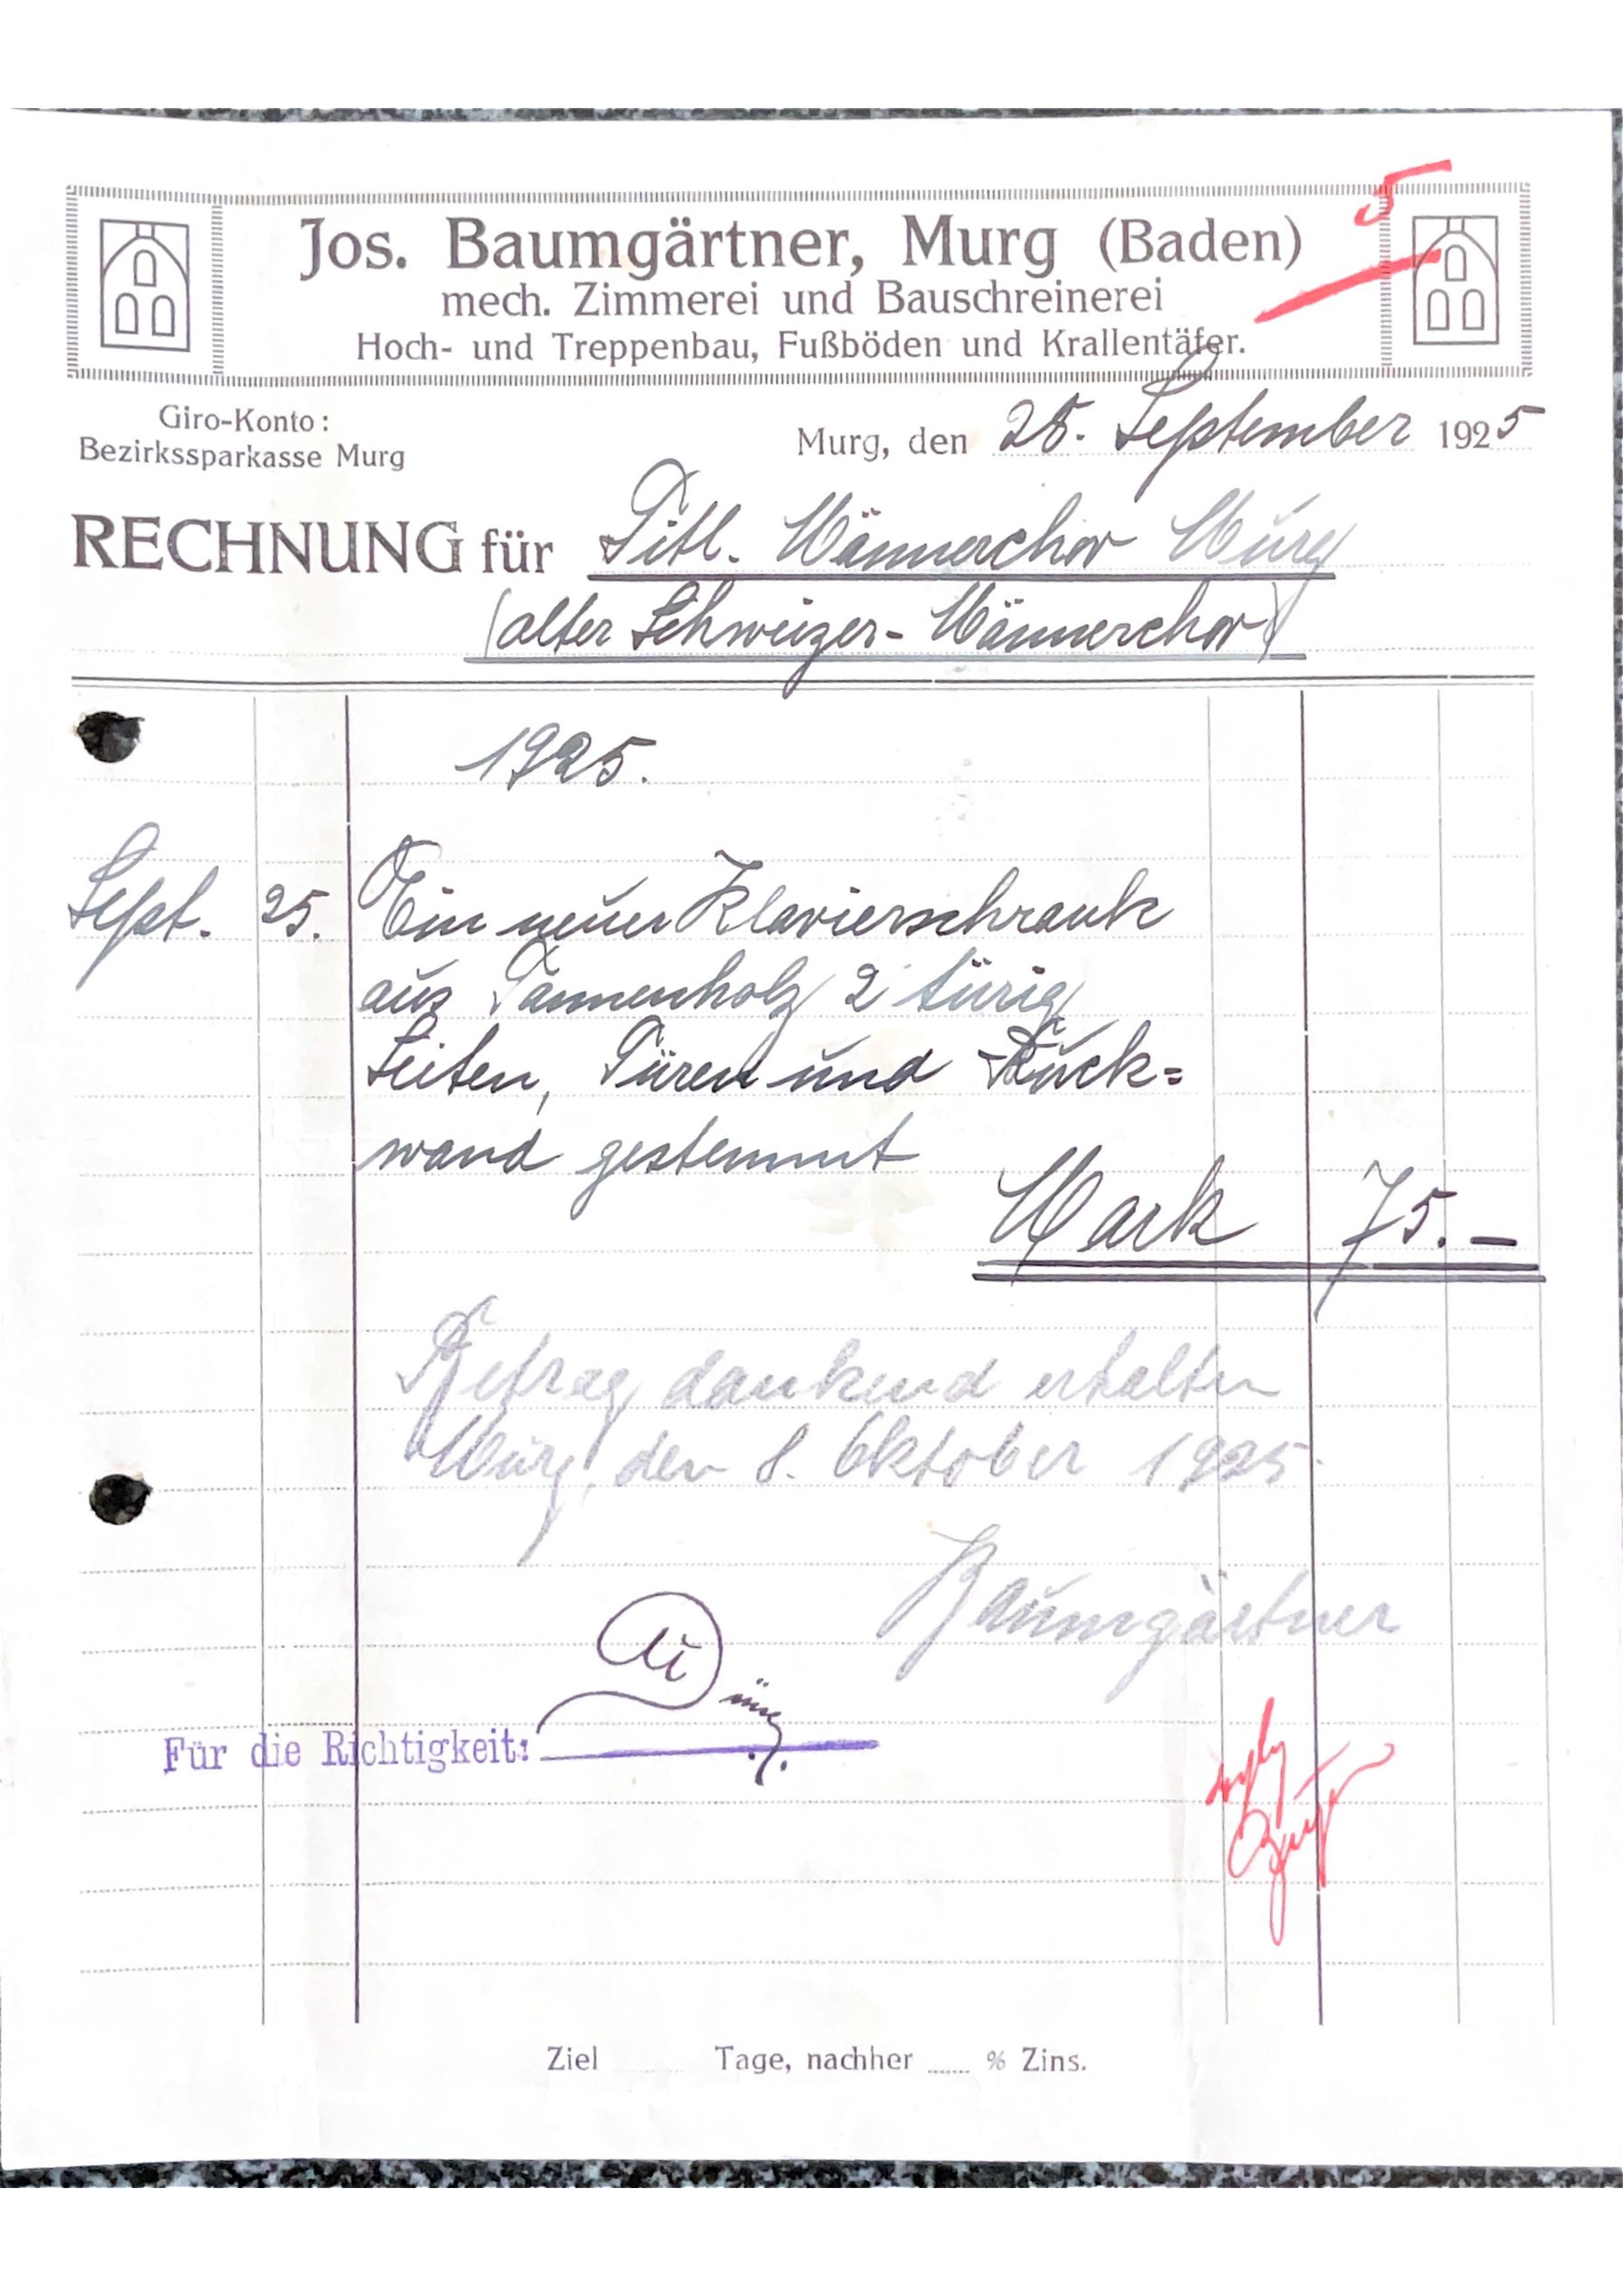 5
Jos. Baumgärtner, Murg (Baden)
mech. Zimmerei und Bauschreinerei
Hoch- und Treppenbau, Fußböden und Krallentäfer.
Giro-Konto:
Bezirkssparkasse Murg
Murg, den 28. September 1925
RECHNUNG für Titl. Männerchor Murg
(alter Schweizer-Männerchor)
1925.
Sept. 25. Ein neuer Klavierschrank
aus Tannenholz 2 türig
Seiten, Türen und Rück=
wand gestemmt
Mark 75.–
Betrag dankend erhalten
Murg, den 8. Oktober 1925.
Baumgärtner
Für die Richtigkeit:
Ziel Tage, nachher % Zins.